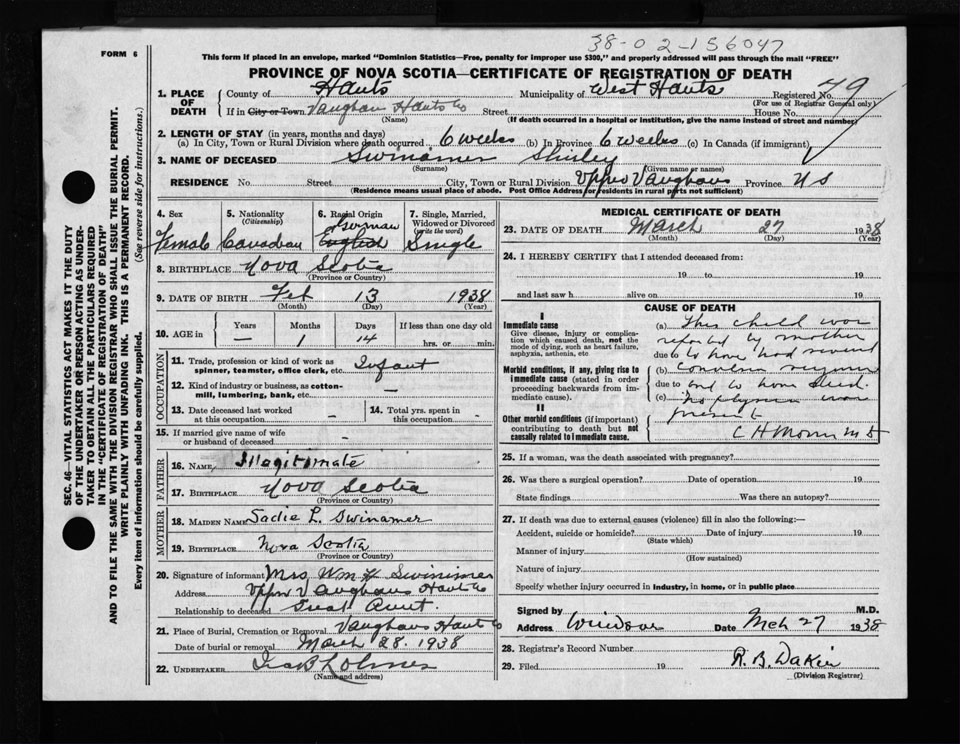 38-02-156047
FORM 6
This form if placed in an envelope, marked "Dominion Statistics—Free, penalty for improper use $300," and properly addressed will pass through the mail "FREE"
PROVINCE OF NOVA SCOTIA—CERTIFICATE OF REGISTRATION OF DEATH
1. PLACE OF DEATH
County of Hants Municipality of West Hants Registered No. 49
(For use of Registrar General only)
If in City or Town Vaughan Hants Co Street House No.
(Name) (If death occurred in a hospital or institution, give the name instead of street and number)
2. LENGTH OF STAY (in years, months and days)
(a) In City, Town or Rural Division where death occurred 6 weeks (b) In Province 6 weeks (c) In Canada (if immigrant)
3. NAME OF DECEASED Swinamer Shirley
(Surname) (Given name or names)
RESIDENCE No. Street City, Town or Rural Division Upper Vaughans Province NS
(Residence means usual place of abode. Post Office Address for residents in rural parts not sufficient)
4. Sex 5. Nationality (Citizenship) 6. Racial Origin 7. Single, Married, Widowed or Divorced (write the word)
German
Female Canadian English Single
8. BIRTHPLACE Nova Scotia
(Province or Country)
9. DATE OF BIRTH Feb 13 1938
(Month) (Day) (Year)
10. AGE in Years Months Days If less than one day old
— 1 14 hrs. or min.
OCCUPATION
11. Trade, profession or kind of work as spinner, teamster, office clerk, etc. Infant
12. Kind of industry or business, as cotton-mill, lumbering, bank, etc. —
13. Date deceased last worked at this occupation — 14. Total yrs. spent in this occupation —
15. If married give name of wife or husband of deceased -
FATHER
16. NAME Illegitimate
17. BIRTHPLACE Nova Scotia
(Province or Country)
MOTHER
18. MAIDEN NAME Sadie L. Swinamer
19. BIRTHPLACE Nova Scotia
(Province or Country)
20. Signature of informant Mrs Wm H Swinimer
Address Upper Vaughans Hants Co
Relationship to deceased Great Aunt.
21. Place of Burial, Cremation or Removal Vaughans Hants Co
Date of burial or removal March 28. 1938
22. UNDERTAKER Ira B Lohnes
(Name and address)
MEDICAL CERTIFICATE OF DEATH
23. DATE OF DEATH March 27 1938
(Month) (Day) (Year)
24. I HEREBY CERTIFY that I attended deceased from:
19 to 19
and last saw h alive on 19
CAUSE OF DEATH
I
Immediate cause
Give disease, injury or complication which caused death, not the mode of dying, such as heart failure, asphyxia, asthenia, etc
Morbid conditions, if any, giving rise to immediate cause (stated in order proceeding backwards from immediate cause).
II
Other morbid conditions (if important) contributing to death but not causally related to immediate cause.
(a) This child was
reported by mother
due to to have had several
(b) convulsive
due to and to have died.
(c) No physician was
present
C H Morris M D
25. If a woman, was the death associated with pregnancy?
26. Was there a surgical operation? Date of operation 19
State findings Was there an autopsy?
27. If death was due to external causes (violence) fill in also the following:—
Accident, suicide or homicide? Date of injury 19
(State which)
Manner of injury
(How sustained)
Nature of injury
Specify whether injury occurred in industry, in home, or in public place
Signed by M.D.
Address Windsor Date Mch 27 1938
28. Registrar's Record Number
29. Filed 19 R. B. Dakin
(Division Registrar)
SEC. 46—VITAL STATISTICS ACT MAKES IT THE DUTY
OF THE UNDERTAKER OR PERSON ACTING AS UNDER-
TAKER TO OBTAIN ALL THE PARTICULARS REQUIRED
IN THE "CERTIFICATE OF REGISTRATION OF DEATH"
AND TO FILE THE SAME WITH THE DIVISION REGISTRAR WHO SHALL ISSUE THE BURIAL PERMIT.
WRITE PLAINLY WITH UNFADING INK. THIS IS A PERMANENT RECORD.
Every item of information should be carefully supplied. (See reverse side for instructions.)